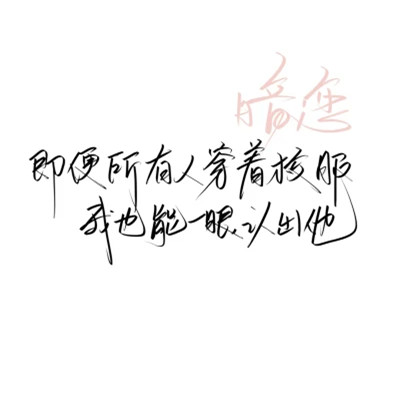 暗恋
即便所有人穿着校服
我也能一眼认出他